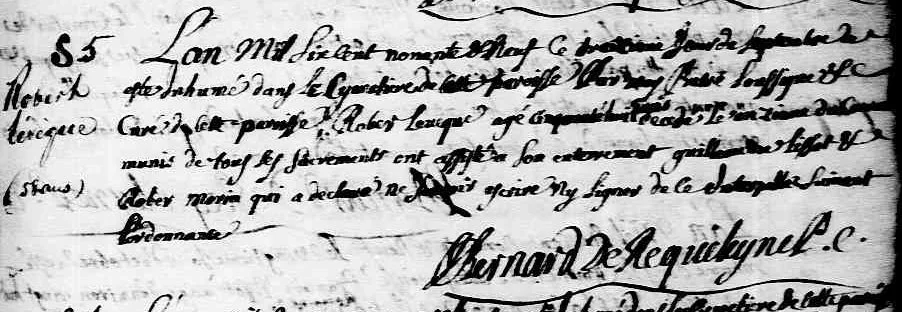 S5
Robert
Leveque
L'an Mil Six Cent nonante & Neuf Ce treizieme Jour de Septembre a
este Inhumé dans le Cymetiere de cette paroisse Par nous Prêtre soussigné &c
Curé de cette parroisse Rober Leveque agé Cinquante huit ans decedé le onzieme du Courant
munis de tous les Sacrements ont assisté a son enterrement guillaume Lissot &
Rober morin qui a declaré ne Scavoir escrire Ny Signer de ce Interpellé Suivant
l'ordonnance
Bernard De Requeleyne P. C.